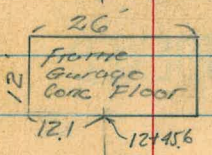 26'
12'
Frame
Garage
Conc Floor
12.1
12+45.6